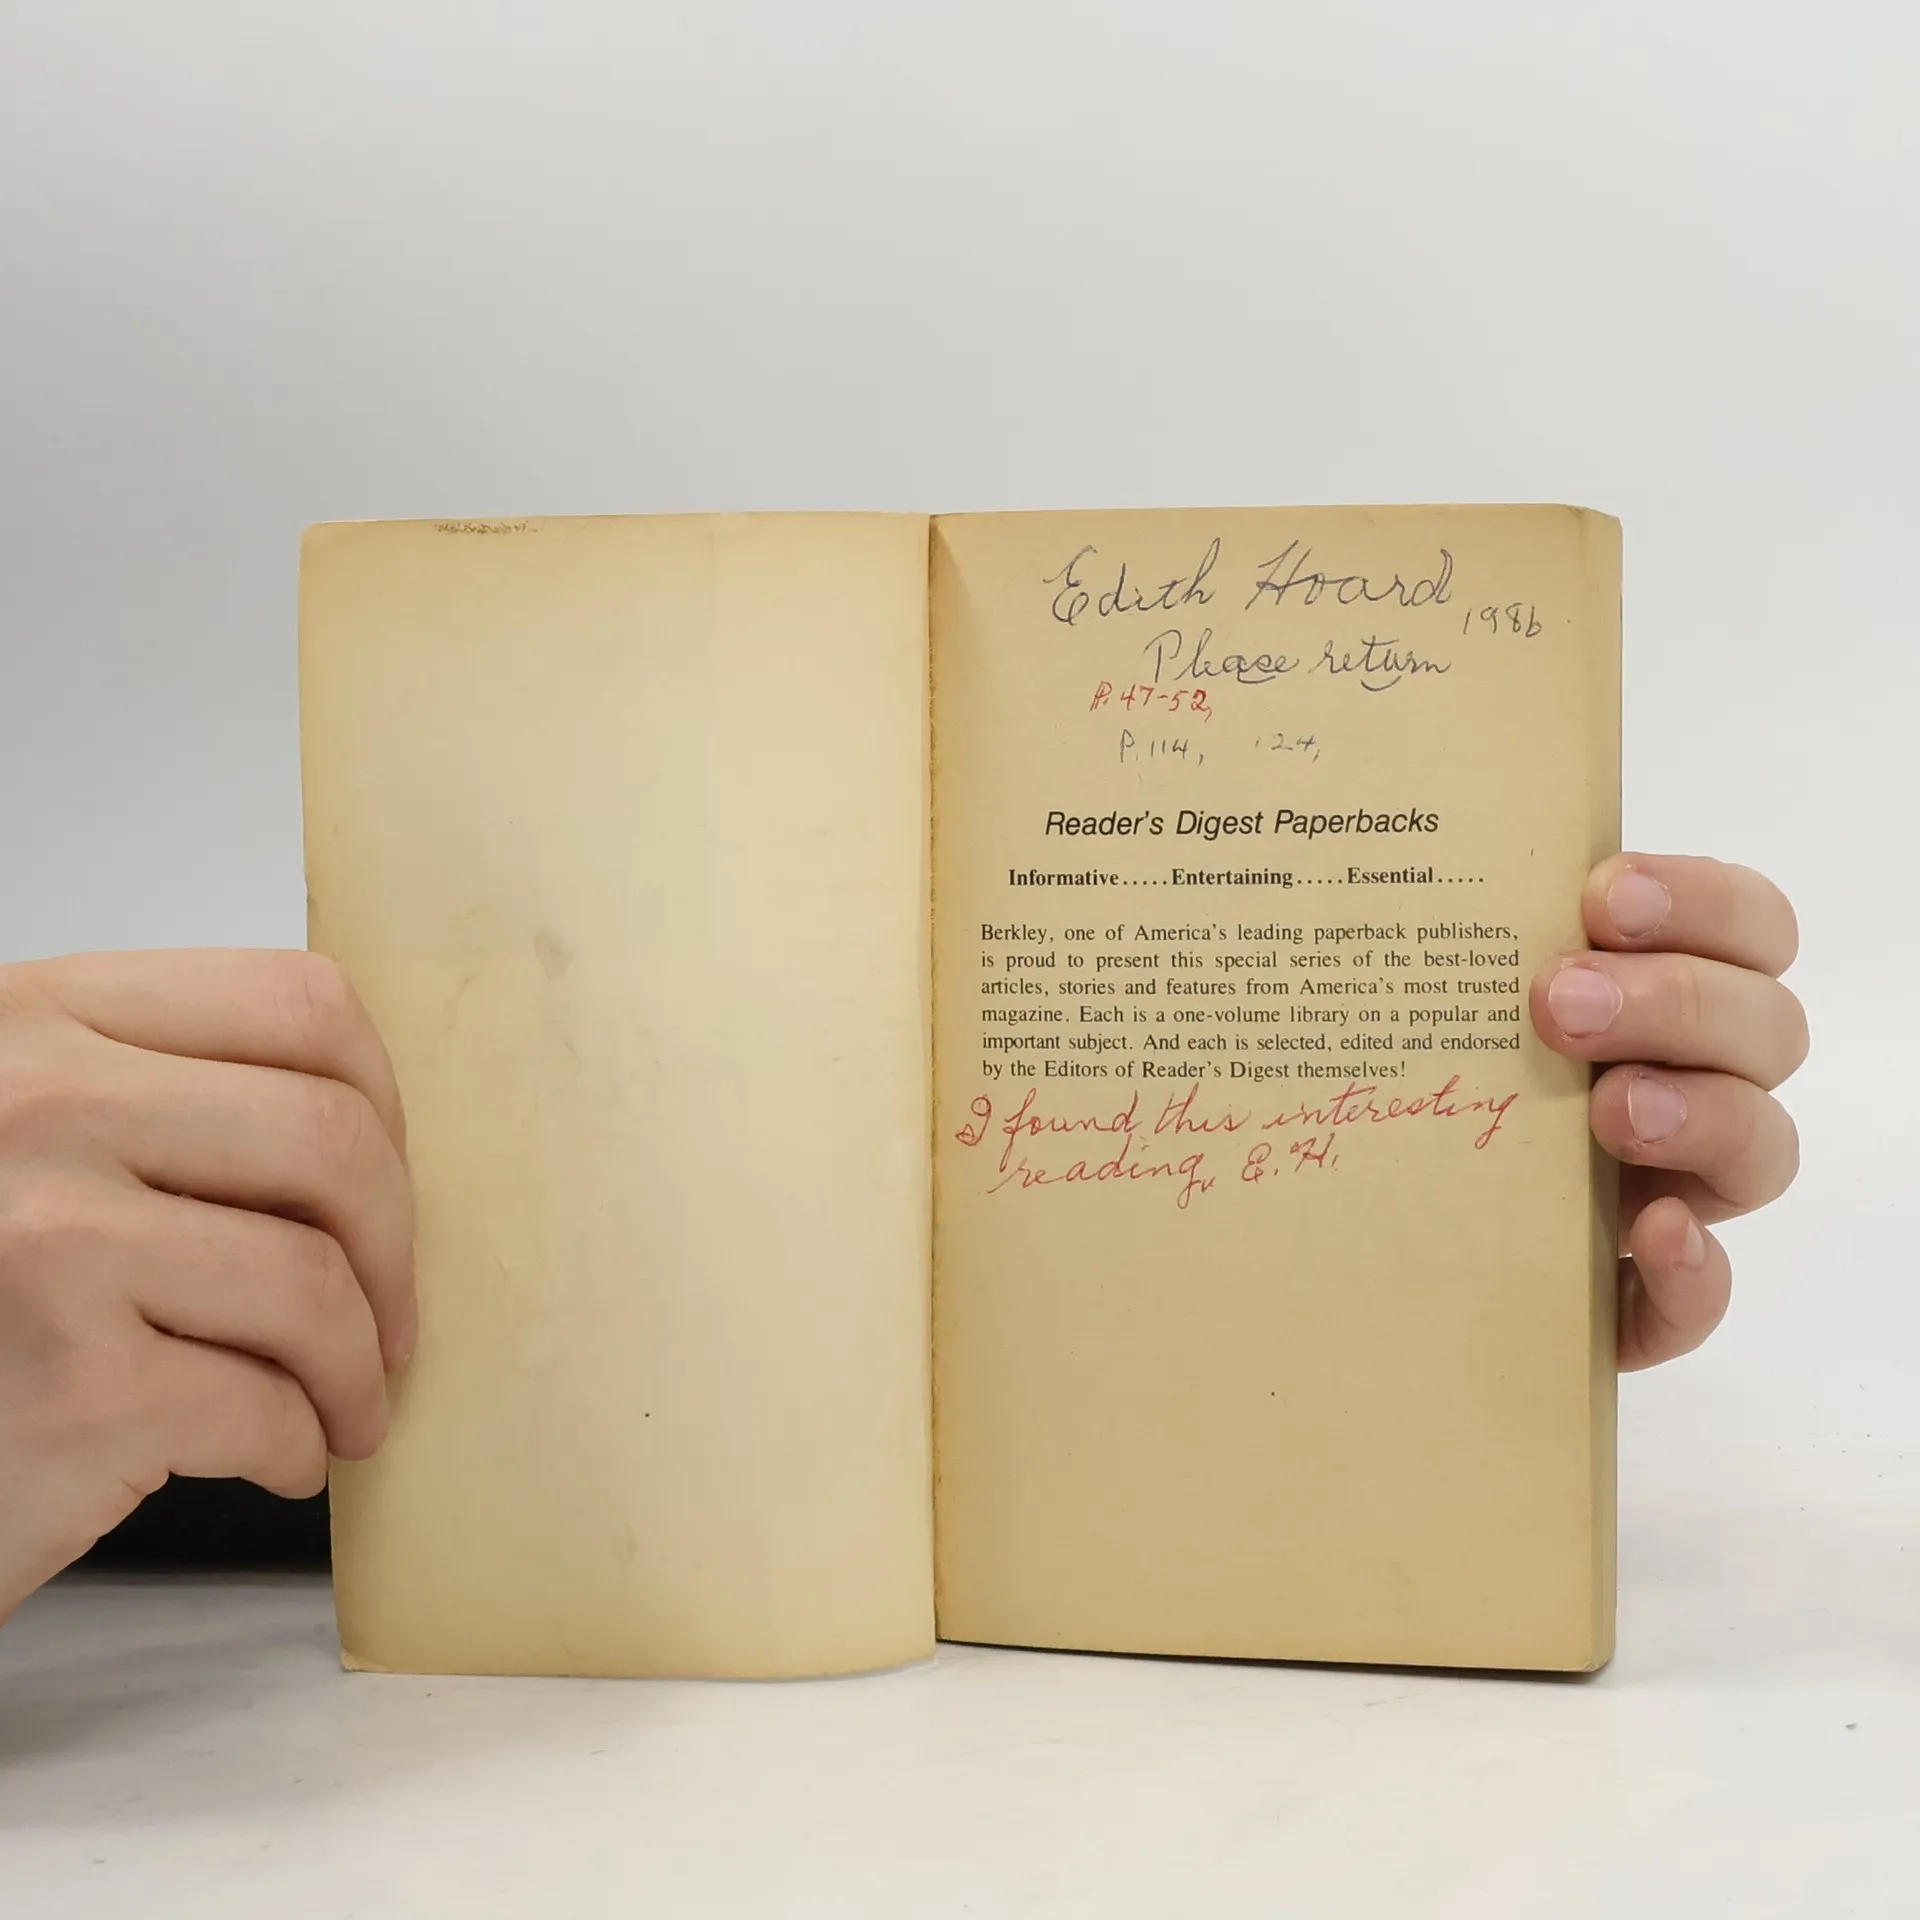 Edith Hoard
1986
Please return
P. 47-52,
P. 114, 124,
Reader's Digest Paperbacks
Informative.....Entertaining.....Essential.....
Berkley, one of America's leading paperback publishers,
is proud to present this special series of the best-loved
articles, stories and features from America's most trusted
magazine. Each is a one-volume library on a popular and
important subject. And each is selected, edited and endorsed
by the Editors of Reader's Digest themselves!
I found this interesting
reading, E.H.